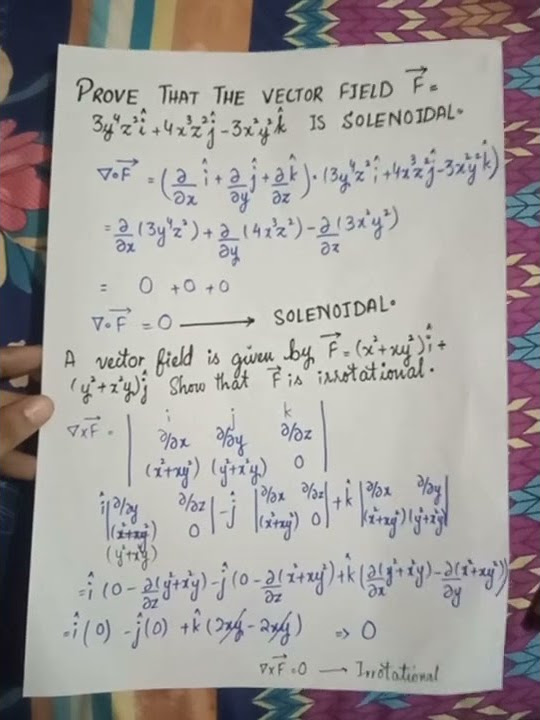 PROVE THAT THE VECTOR FIELD F⃗ =
3y⁴z²î + 4x³z²ĵ - 3x²y²k̂ IS SOLENOIDAL.
∇∘F⃗ = (∂/∂x î + ∂/∂y ĵ + ∂/∂z k̂) · (3y⁴z²î + 4x³z²ĵ - 3x²y²k̂)
= ∂/∂x (3y⁴z²) + ∂/∂y (4x³z²) - ∂/∂z (3x²y²)
= 0 + 0 + 0
∇∘F⃗ = 0 ⟶ SOLENOIDAL.
A vector field is given by F⃗ = (x²+xy²)î +
(y²+x²y)ĵ Show that F⃗ is irrotational.
∇×F⃗ = | i j k
∂/∂x ∂/∂y ∂/∂z
(x²+xy²) (y²+x²y) 0 |
î |∂/∂y ∂/∂z| - ĵ |∂/∂x ∂/∂z| + k̂ |∂/∂x ∂/∂y|
|(x²+xy²) 0| |(x²+xy²) 0| |(x²+xy²) (y²+x²y)|
(y²+x²y)
= î (0 - ∂/∂z (y²+x²y) - ĵ (0 - ∂/∂z (x²+xy²) + k̂ (∂/∂x (y²+x²y) - ∂/∂y (x²+xy²))
= î (0) - ĵ (0) + k̂ (2xy - 2xy) => 0
∇×F⃗ = 0 ⟶ Irrotational